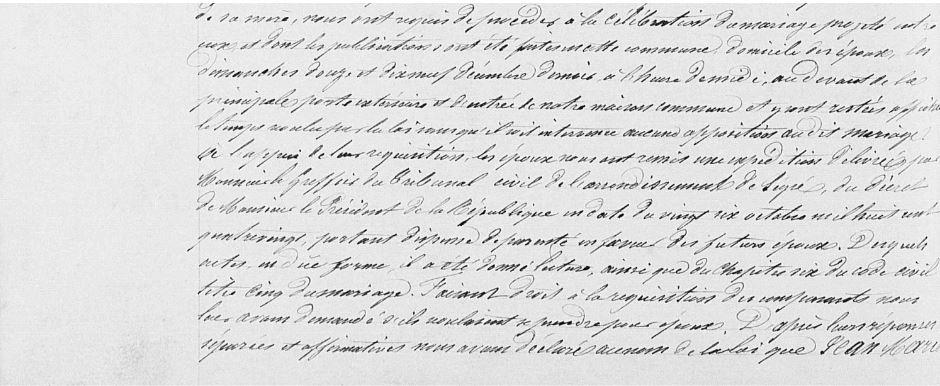 de sa mère, nous ont requis de procéder à la célébration du mariage projeté entre
eux, et dont les publications ont été faites en cette commune, domicile des époux, les
dimanches douze et dix neuf décembre dernier, à l'heure de midi, au devant de la
principale porte extérieure et d'entrée de notre maison commune et y ont restées affichées
le temps voulu par la loi sans qu'il soit intervenu aucune opposition au dit mariage.
À l'appui de leur réquisition, les époux nous ont remis une expédition délivrée par
Monsieur le Greffier du Tribunal civil de l'arrondissement de Segré, du décret
de Monsieur le Président de la République en date du vingt six octobre mil huit cent
quatre vingt, portant dispense de parenté en faveur des futurs époux. Desquels
actes, en due forme, il a été donné lecture, ainsi que du chapitre six du code civil
titre cinq du mariage. Faisant droit à la réquisition des comparants nous
leur avons demandé s'ils voulaient se prendre pour époux. D'après leurs réponses
séparées et affirmatives nous avons déclaré au nom de la loi que Jean Marie